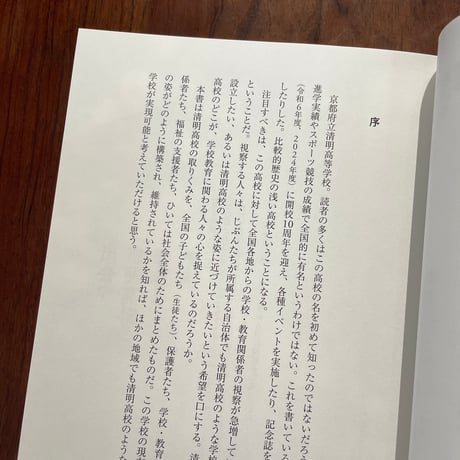 序
京都府立清明高等学校。読者の多くはこの高校の名を初めて知ったのではないだろう
進学実績やスポーツ競技の成績で全国的に有名というわけではない。これを書いている
(令和6年度、2024年度)に開校10周年を迎え、各種イベントを実施したり、記念誌を
したりした。比較的歴史の浅い高校ということになる。
注目すべきは、この高校に対して全国各地からの学校・教育関係者の視察が急増して
ということだ。視察する人々は、じぶんたちが所属する自治体でも清明高校のような学校
設立したい、あるいは清明高校のような姿に近づけていきたいという希望を口にする。清
高校のどこが、学校教育に関わる人々の心を捉えているのだろうか。
本書は清明高校の取りくみを、全国の子どもたち(生徒たち)、保護者たち、学校・教育
係者たち、福祉の支援者たち、ひいては社会全体のためにまとめたものだ。この学校の現在
の姿がどのように構築され、維持されているかを知れば、ほかの地域でも清明高校のような
学校が実現可能と考えていただけると思う。